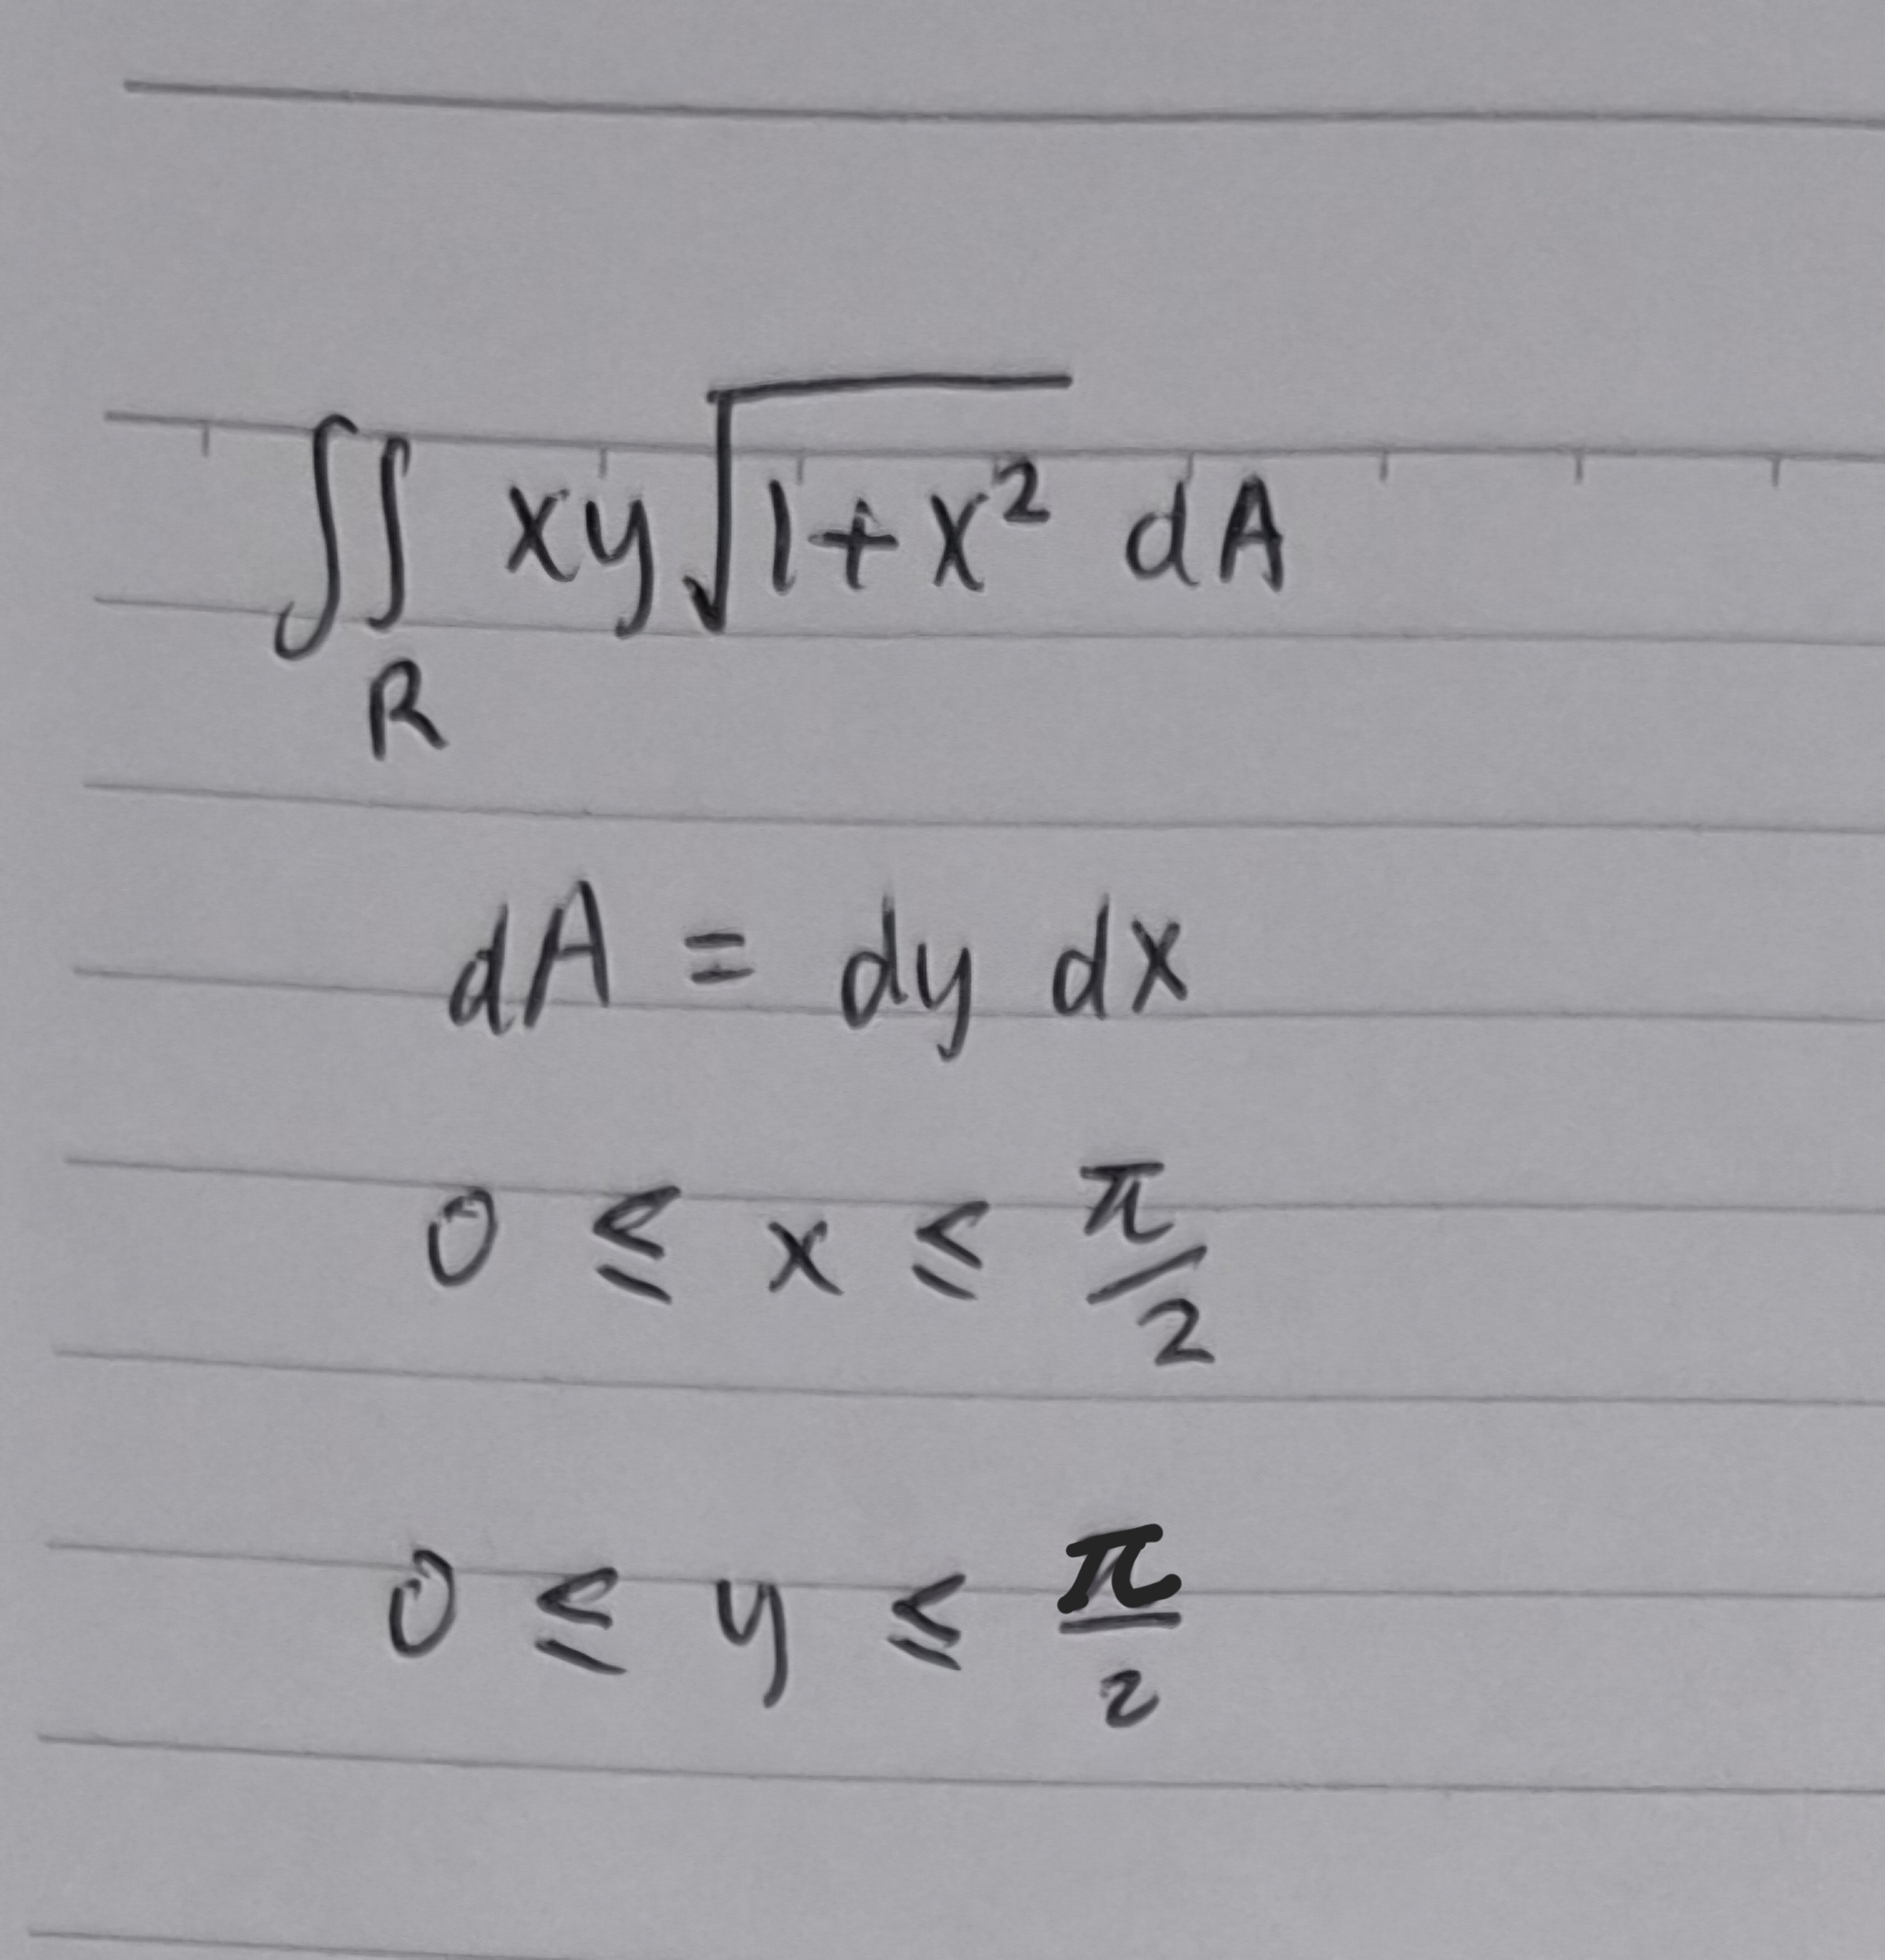 ∬ xy√(1+x²) dA
R
dA = dy dx
0 ≤ x ≤ π/2
0 ≤ y ≤ π/2